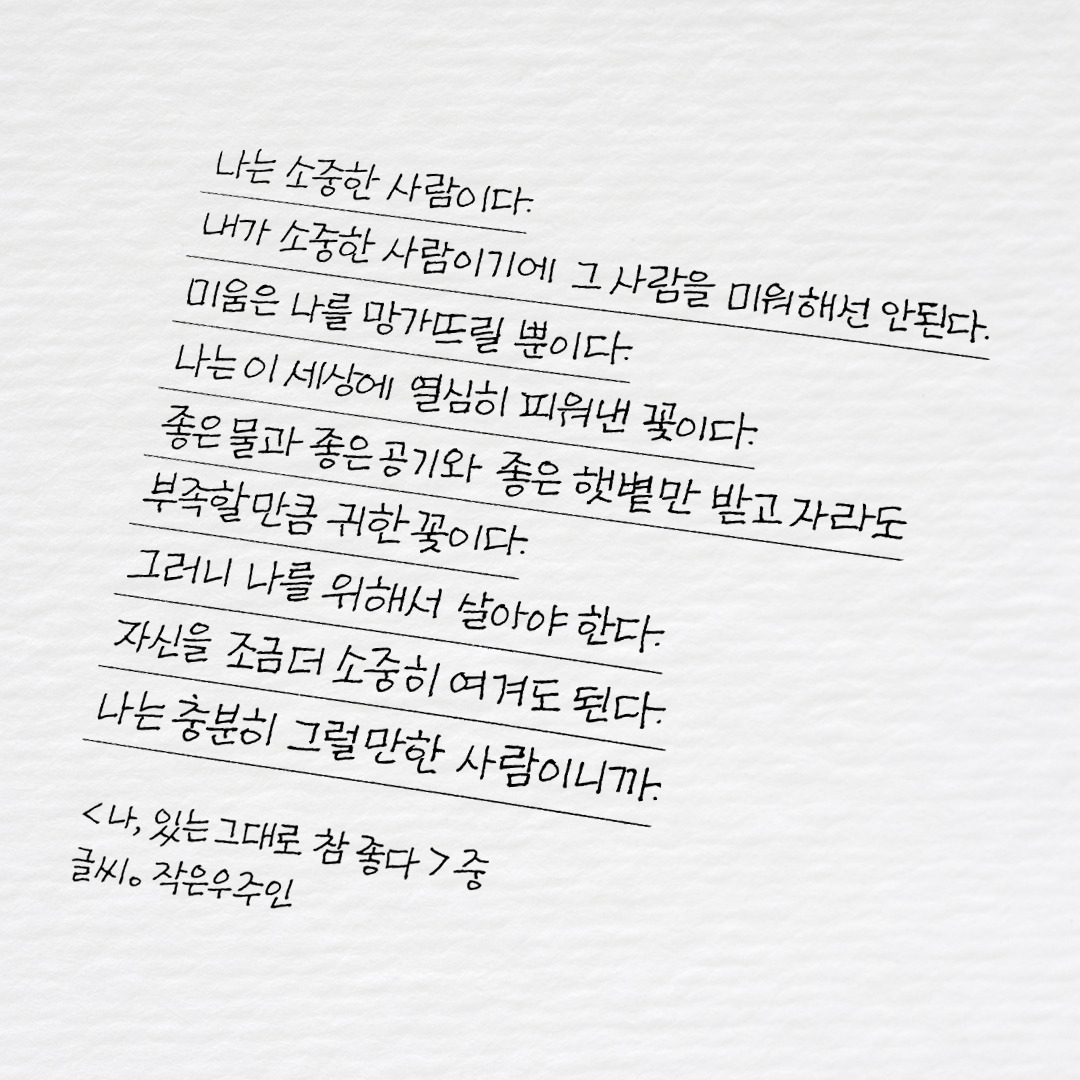 나는 소중한 사람이다.
내가 소중한 사람이기에 그 사람을 미워해선 안된다.
미움은 나를 망가뜨릴 뿐이다.
나는 이 세상에 열심히 피워낸 꽃이다.
좋은 물과 좋은 공기와 좋은 햇볕만 받고 자라도
부족할만큼 귀한 꽃이다.
그러니 나를 위해서 살아야 한다.
자신을 조금 더 소중히 여겨도 된다.
나는 충분히 그럴만한 사람이니까.
<나, 있는 그대로 참 좋다> 중
글씨。작은우주인